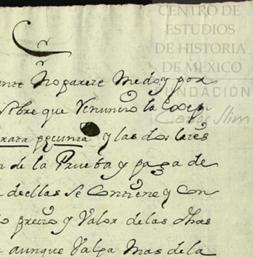 CENTRO DE
ESTUDIOS
DE HISTORIA
DE MÉXICO
FUNDACIÓN
Carlos Slim
no parece me doy por
sobre que renuncio la excep
pecunia y las dos leies
de la Prueba y paga de
dellas se contiene y con
precio y valor de las dhas
aunque valga mas de la